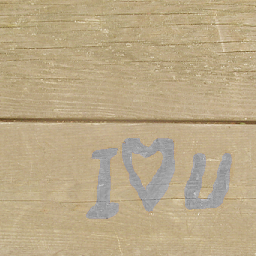 I ♡ U